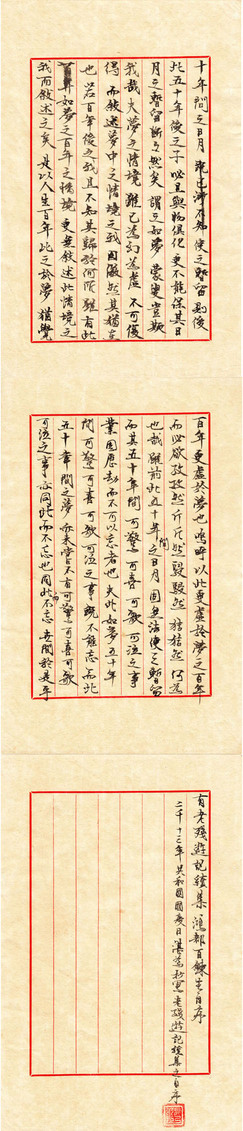 十年間之日月既已渺不知使之暫留則後
此五十年後之予必且與物俱化更不能保其日
月之暫留斷斷然矣謂之如夢蒙豈欺
我哉夫夢之情境雖已為幻為虛不可復
得而敘述夢中之情境之我固儼然其猶在
也若百年後之我且不知其歸於何所雖有此
如夢之百年之情境更無敘述此情境之
我而敘述之矣是以人生百年比之於夢猶覺
百年更虛於夢也嗚呼以此更虛於夢之百年
而必欲孜孜然斤斤然駸駸然狺狺然何為
也哉雖前此五十年間之日月固無法使之暫留
而其五十年間可驚可喜可歌可泣之事
業固歷劫而不可以忘者也夫此如夢五十年
間可驚可喜可歌可泣之事既不能忘而此
五十年間之夢亦未嘗不有可驚可喜可歌
可泣之事亦同此而不忘也同此而不忘世間於是乎
有老殘遊記續集鴻都百鍊生自序
二千十三年共和國國慶日 抄寫老殘遊記續集之自序